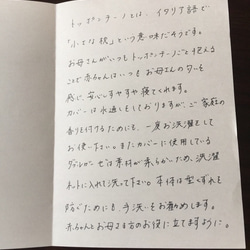 トッポンチーノとは、イタリア語で
「小さな枕」という意味だそうです。
お母さんがいつもトッポンチーノごと抱える
ことで赤ちゃんはいつもお母さんのニオイを
感じ、安心しすやすや寝てくれます。
カバーは水通しをしておりますが、ご家庭の
香りを付けるためにも、一度お洗濯をして
お使い下さい。またカバーに使用している
ダブルガーゼは素材が柔らかいため、洗濯
ネットに入れて洗って下さい。本体は型くずれを
防ぐためにも手洗いをお勧めします。
赤ちゃんとお母さまのお役に立てますように。